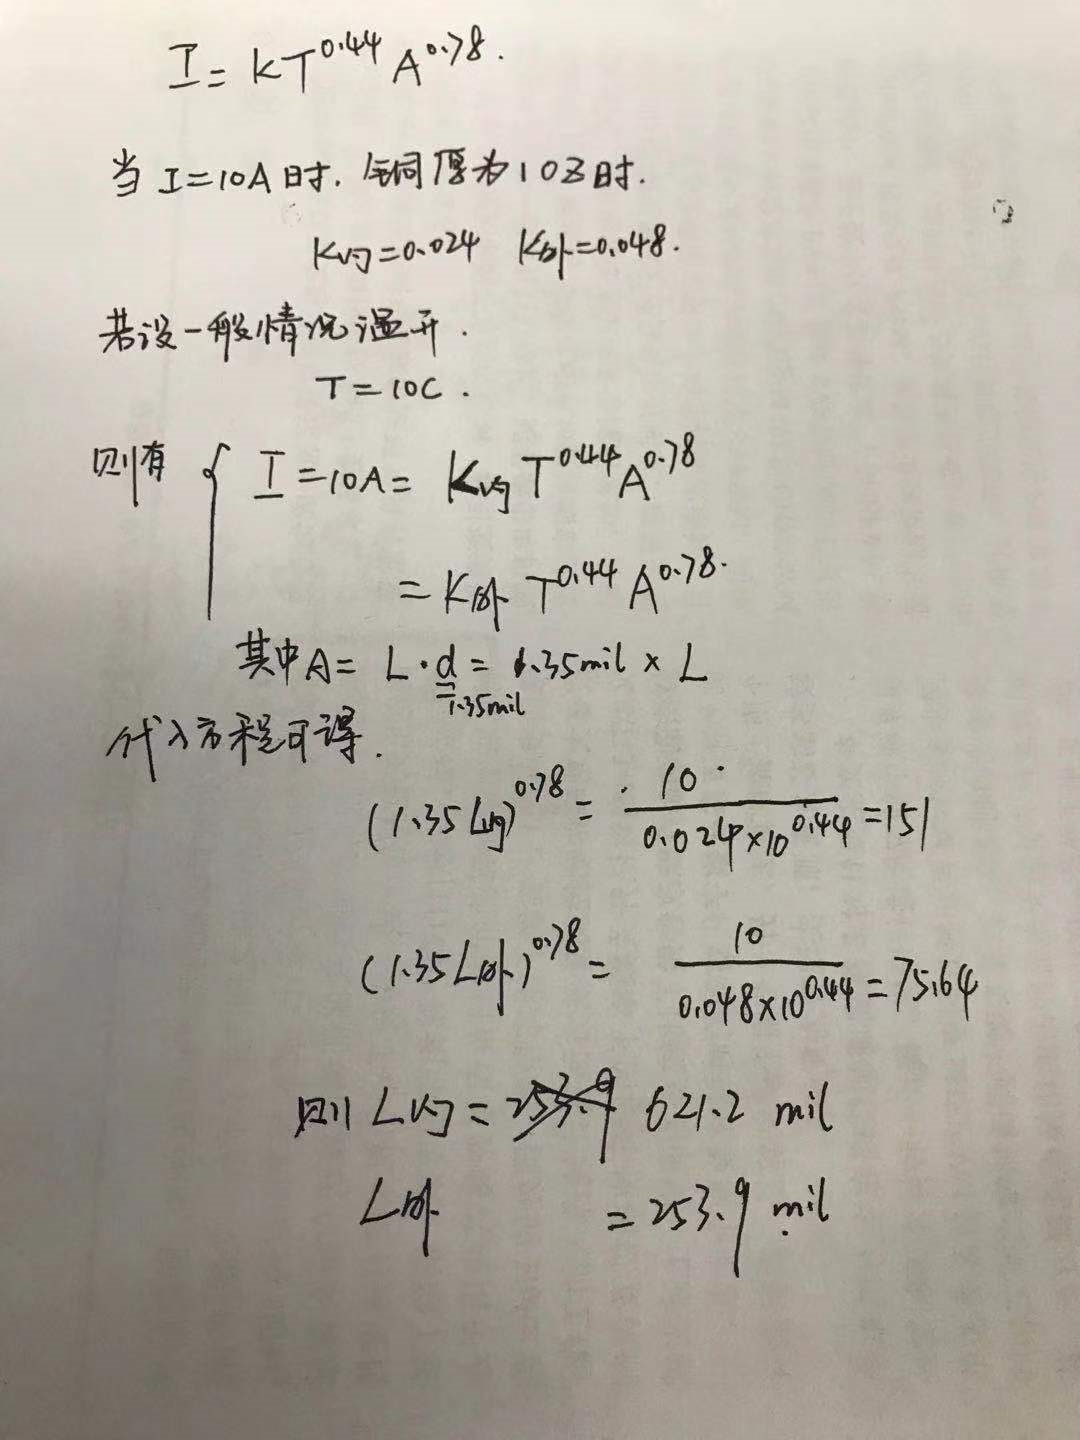 I = KT^0.44 A^0.78.
当 I=10A时. 铜厚为1OZ时.
K内=0.024 K外=0.048.
若设一般情况温升.
T=10C.
则有 { I=10A= K内 T^0.44 A^0.78
= K外 T^0.44 A^0.78.
其中A= L·d = 1.35mil × L
=1.35mil
代入方程可得.
(1.35 L内)^0.78 = 10 / 0.024×10^0.44 =151
(1.35 L外)^0.78 = 10 / 0.048×10^0.44 =75.64
则 L内= 253.9 621.2 mil
L外 =253.9 mil